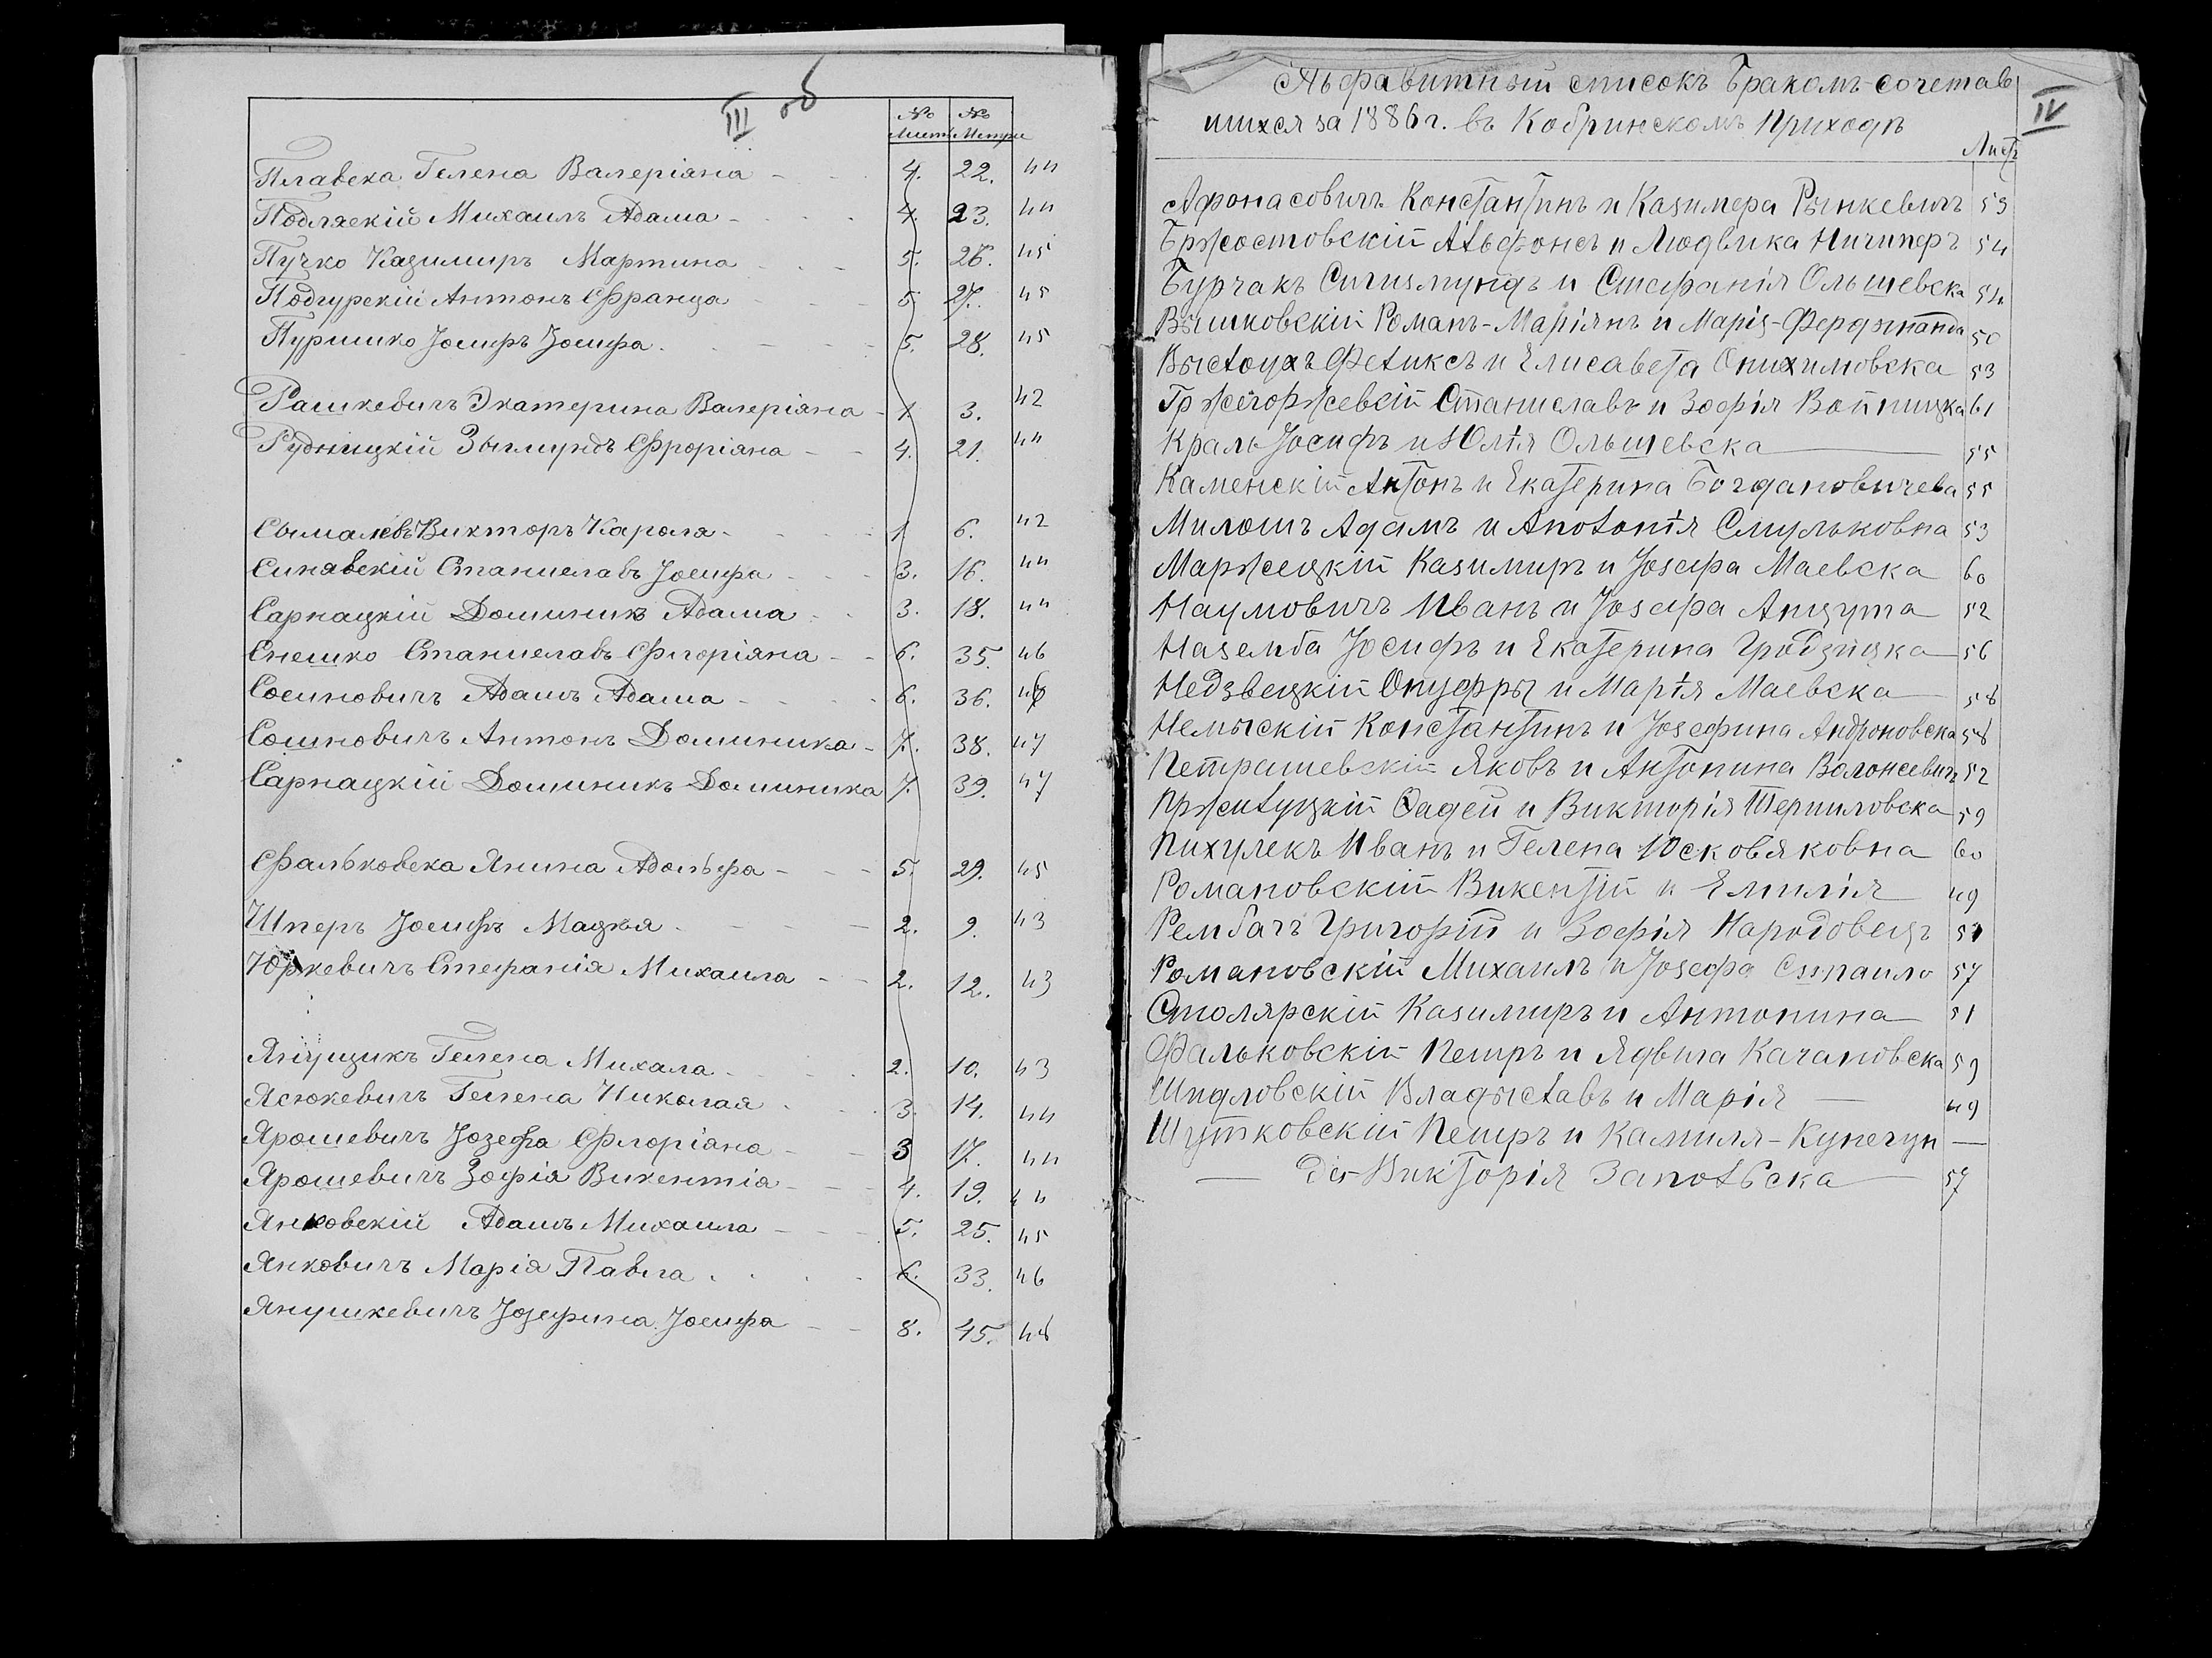 III об
№ Лист. № Метри
Плавска Гелена Валеріяна - - 4. 22. 44
Подляскій Михаилъ Адама - - 4. 23. 44
Пучко Казимиръ Мартина - - 5. 26. 45
Подгурскій Антонъ Франца - - 5. 27. 45
Пуришко Іосифъ Іосифа - - 5. 28. 45
Рашкевичъ Экатерина Валеріяна - 1. 3. 42
Рудницкій Зыгмундъ Флоріяна - - 4. 21. 44
Викторъ Кароля - - 1 6. 42
Синявскій Станиславъ Іосифа - - 3. 16. 44
Сарнацкій Доминикъ Адама - - 3. 18. 44
Снешко Станиславъ Флоріяна - - 6. 35. 46
Сосиновичъ Адамъ Адама - - 6. 36.
Сошновичъ Антонъ Доминика - 7. 38. 47
Сарнацкій Доминикъ Доминика 7. 39. 47
Фальковска Янина Адольфа - - - 5. 29. 45
Шперъ Іосифъ Мацѣя - - 2. 9. 43
Юркевичъ Стефанія Михаила - - 2. 12. 43
Янущикъ Гелена Михала - - 2. 10. 43
Ясюкевичъ Гелена Николая - - 3. 14. 44
Ярошевичъ Іозефа Флоріана - - 3 17. 44
Ярошевичъ Зофія Викентія - - 4. 19. 44
Янковскій Адамъ Михаила - - 5. 25. 45
Янковичъ Марія Павла - - 6. 33. 46
Янушкевичъ Іозефина Іосифа - - 8. 45. 48
IV
Альфавитный списокъ Бракомъ-сочетав
шихся за 1886 г. въ Кобринскомъ Приходѣ
Листъ
Афонасовичъ Константинъ и Казимера Рынкевичъ 53
Бржостовскій Альфонсъ и Людвика Ничиперъ 54
Бурчакъ Сигизмундъ и Стефанія Ольшевска 54
Вышковскій Романъ-Маріянъ и Марія- 50
Выслоухъ Феликсъ и Елисавета Опихимовска 53
Гржегоржевскій Станиславъ и Зофія Войницка 61
Краль Іосифъ и Юлія Ольшевска 55
Каменскій Антонъ и Екатерина Богдановичева 55
Милошъ Адамъ и Аполонія Смульковна 53
Маржецкій Казимиръ и Іозефа Маевска 60
Наумовичъ Иванъ и Іозефа Анцута 52
Наземба Іосифъ и Екатерина Гродзицка 56
Недзвецкій Онуфры и Марія Маевска 58
Немыскій Константинъ и Іозефина Андроновска 58
Петрашевскій Яковъ и Антонина Волонсевичъ 52
Пржилуцкій Фадей и Викторія Терпиловска 59
Пихулекъ Иванъ и Гелена Юсковяковна 60
Романовскій Викентій и Емилія 49
Рембачъ Григорій и Зофія Народовецъ 51
Романовскій Михаилъ и Іозефа 57
Столярскій Казимиръ и Антонина 51
Фальковскій Петръ и Ядвига Качановска 59
Шидловскій Владыславъ и Марія — 49
Шутковскій Петръ и Камиля-Кунегун —
— де-Викторія Запольска 57